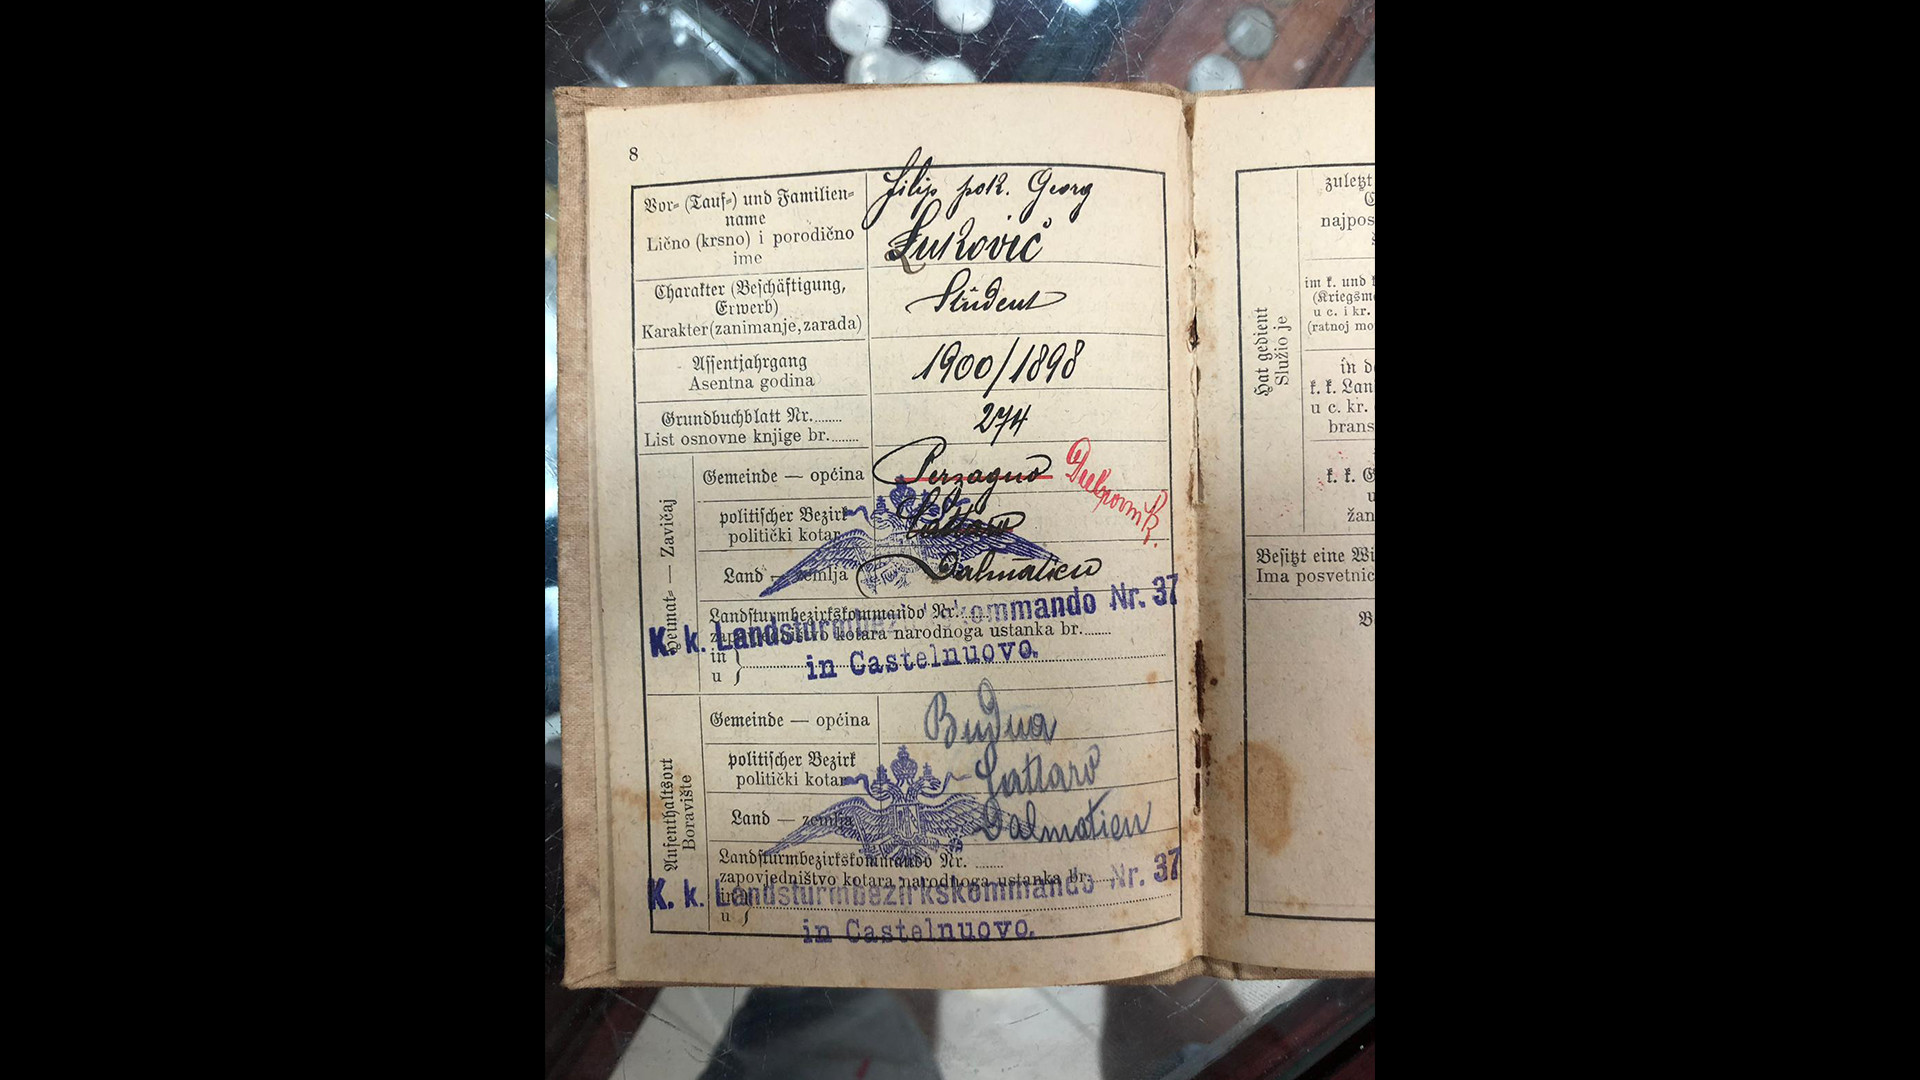 8
Vor- (Tauf-) und Familien-
name
Lično (krsno) i porodično
ime
Filip pok. Georg
Luković
Charakter (Beschäftigung,
Erwerb)
Karakter (zanimanje, zarada)
Student
Assentjahrgang
Asentna godina
1900/1898
Grundbuchblatt Nr.......
List osnovne knjige br.......
274
Heimat- — Zavičaj
Gemeinde — općina
Perzagno
Dubrovnik.
politischer Bezirk
politički kotar
Cattaro
Land — zemlja
Dalmatien
Landsturmbezirkskommando Nr.......
zapovjedništvo kotara narodnoga ustanka br.......
in
u
K. k. Landsturmbezirkskommando Nr. 37
in Castelnuovo.
Aufenthaltsort
Boravište
Gemeinde — općina
Budua
politischer Bezirk
politički kotar
Cattaro
Land — zemlja
Dalmatien
Landsturmbezirkskommando Nr. .......
zapovjedništvo kotara narodnoga ustanka br.......
in
u
K. k. Landsturmbezirkskommando Nr. 37
in Castelnuovo.
Hat gedient
Služio je
zuletzt
najpos
im k. und
(Kriegsm
u c. i kr.
(ratnoj mo
in d
k. k. Lan
u c. kr.
brans
k. k. G
u
žan
Besitzt eine Wi
Ima posvetnic